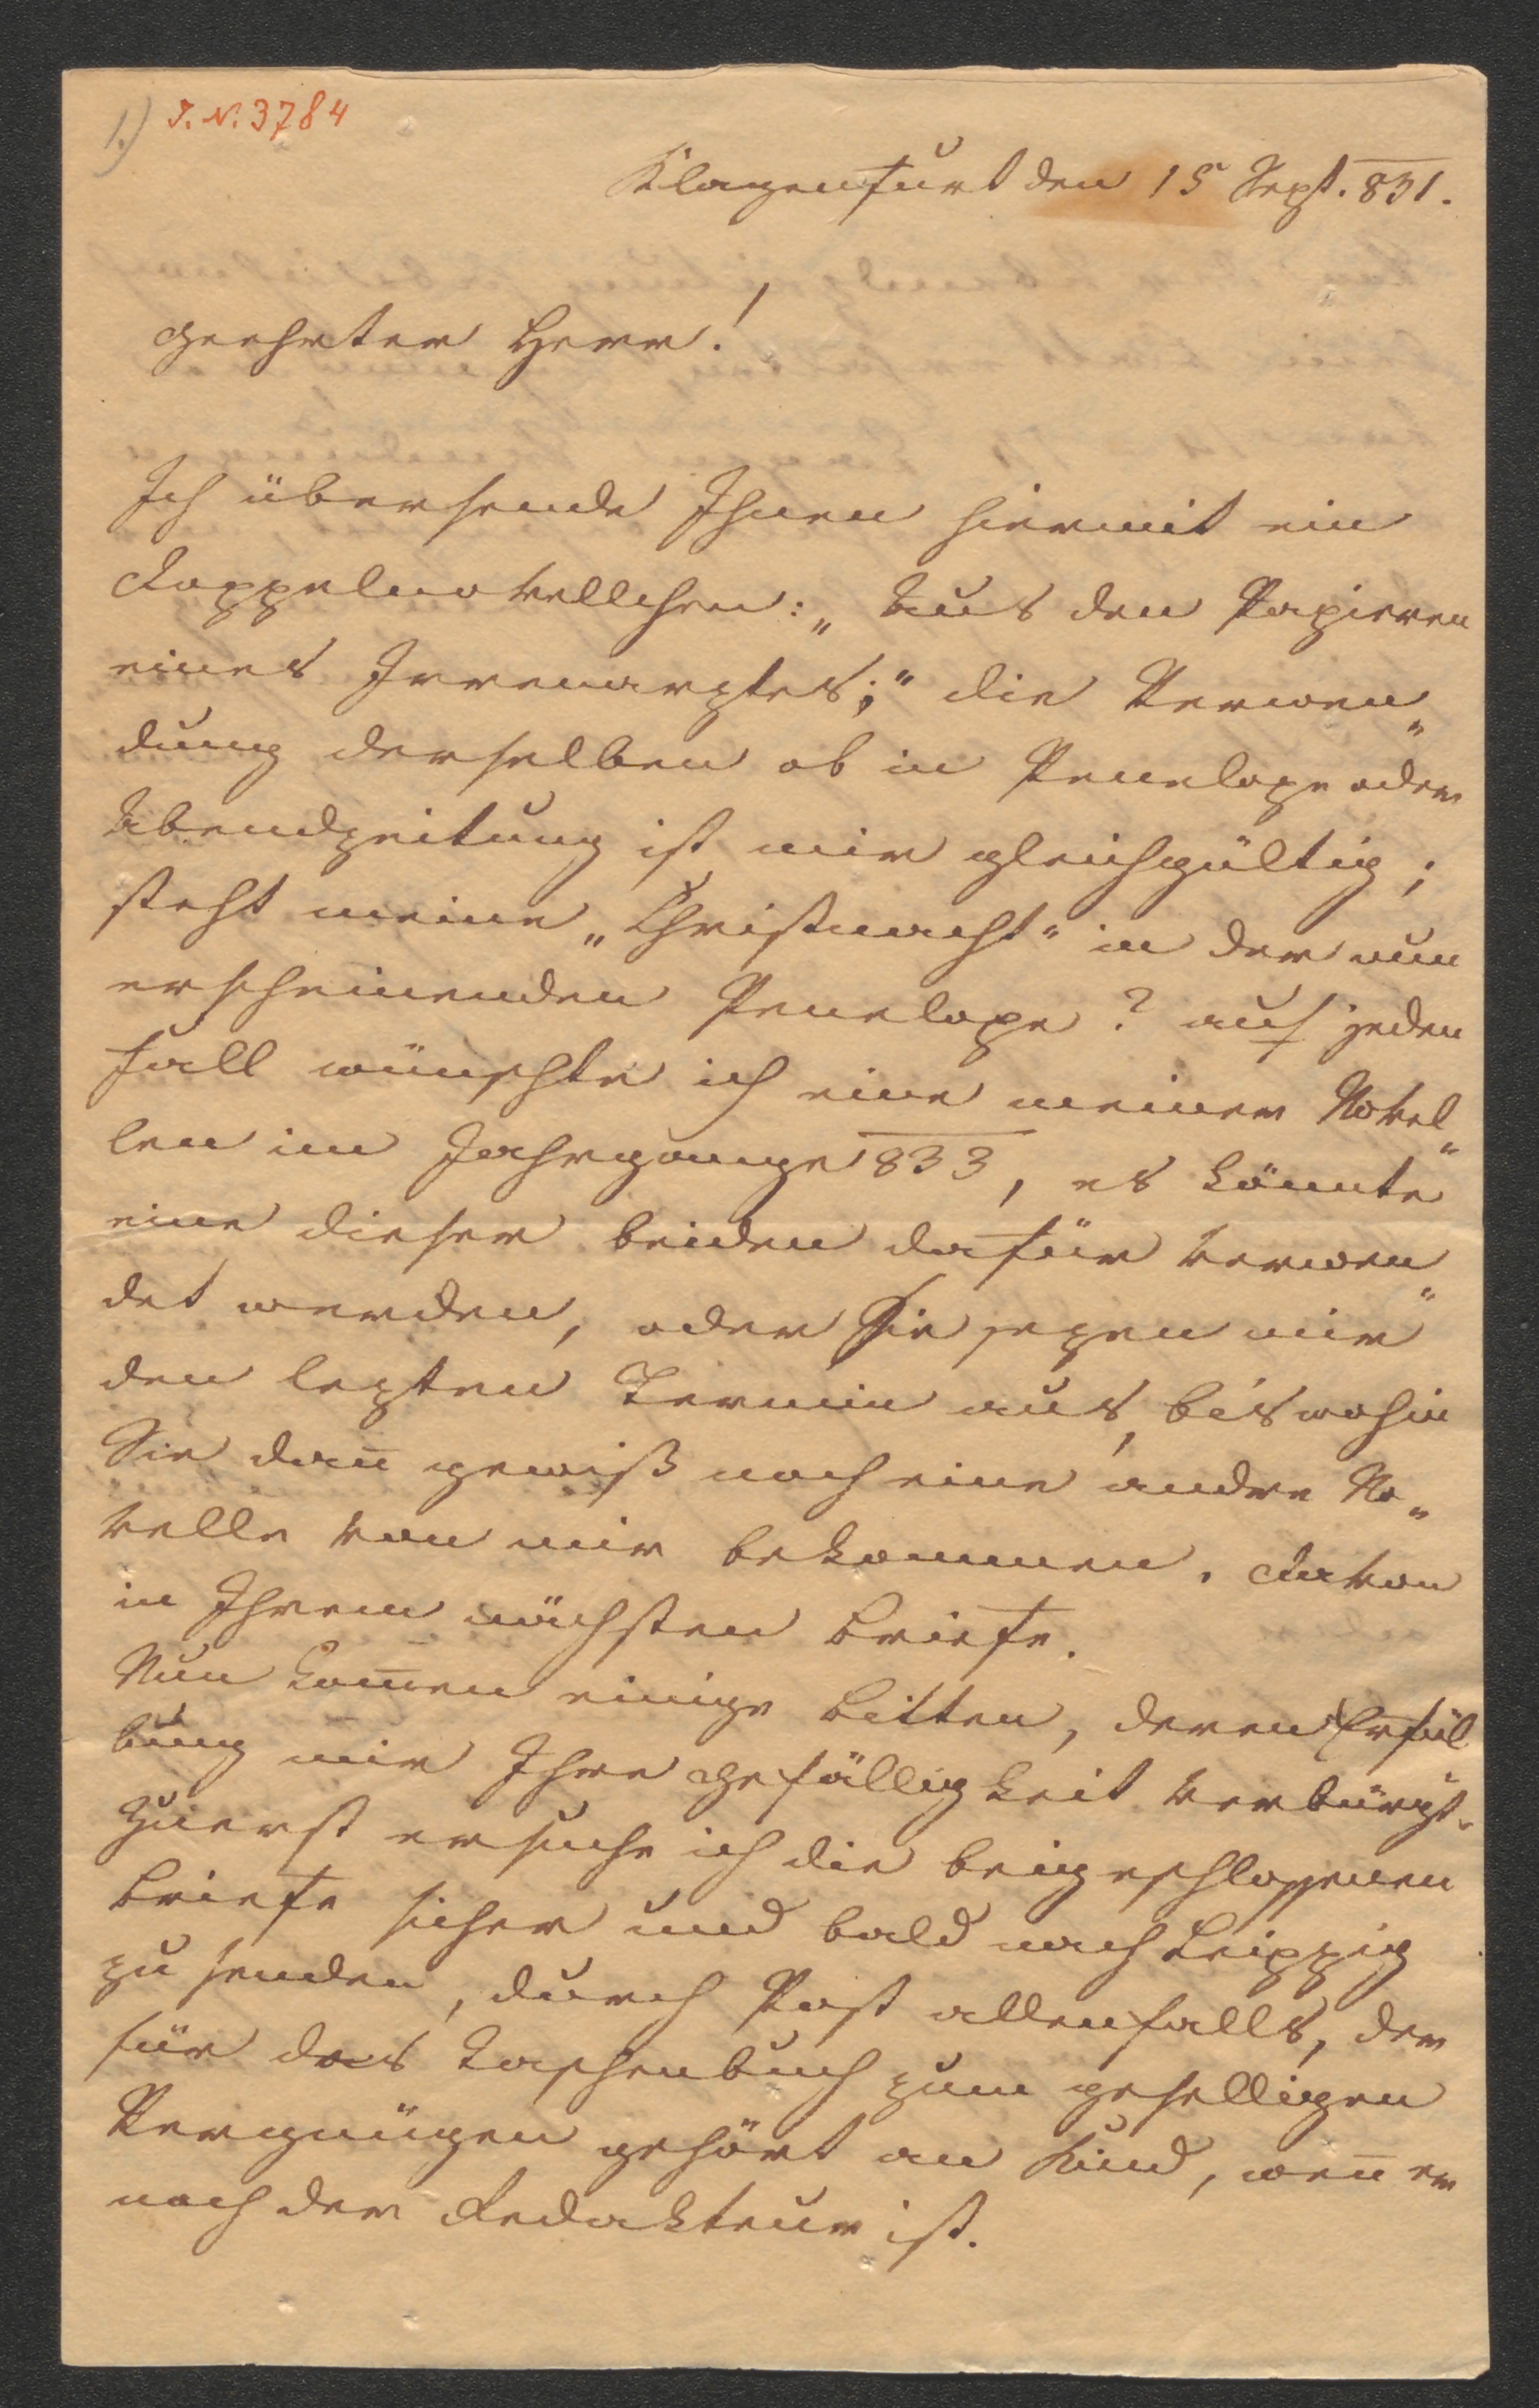 1.) J. N. 3784
Klagenfurt den 15 Sept. 831.
Geehrter Herr!
Ich übersende Ihnen hiermit ein
Doppelnovellchen: „Aus den Papieren
eines Irrenarztes;“ die Verwen„
dung derselben ob in Penelope oder
Abendzeitung ist mir gleichgültig;
steht meine „Christnacht“ in der nun
erscheinenden Penelope? auf jeden
Fall wünschte ich eine meiner Novel„
len im Jahrgange 833, es könnte
eine dieser beiden dafür verwen„
det werden, oder Sie sezen mir
den lezten Termin aus, bis wohin
Sie dan̅ gewiß noch eine andre No„
velle von mir bekommen. Davon
in Ihrem nächsten Briefe.
Nun kom̅en einige Bitten, deren Erfül
lung mir Ihre Gefälligkeit verbürgt.
Zuerst ersuche ich die beigeschlossenen
Briefe sicher und bald nach Leipzig
zu senden, durch Post allenfalls, der
für das Taschenbuch zum geselligen
Vergnügen gehört an Kind, wen̅ er
noch der Redakteur ist.